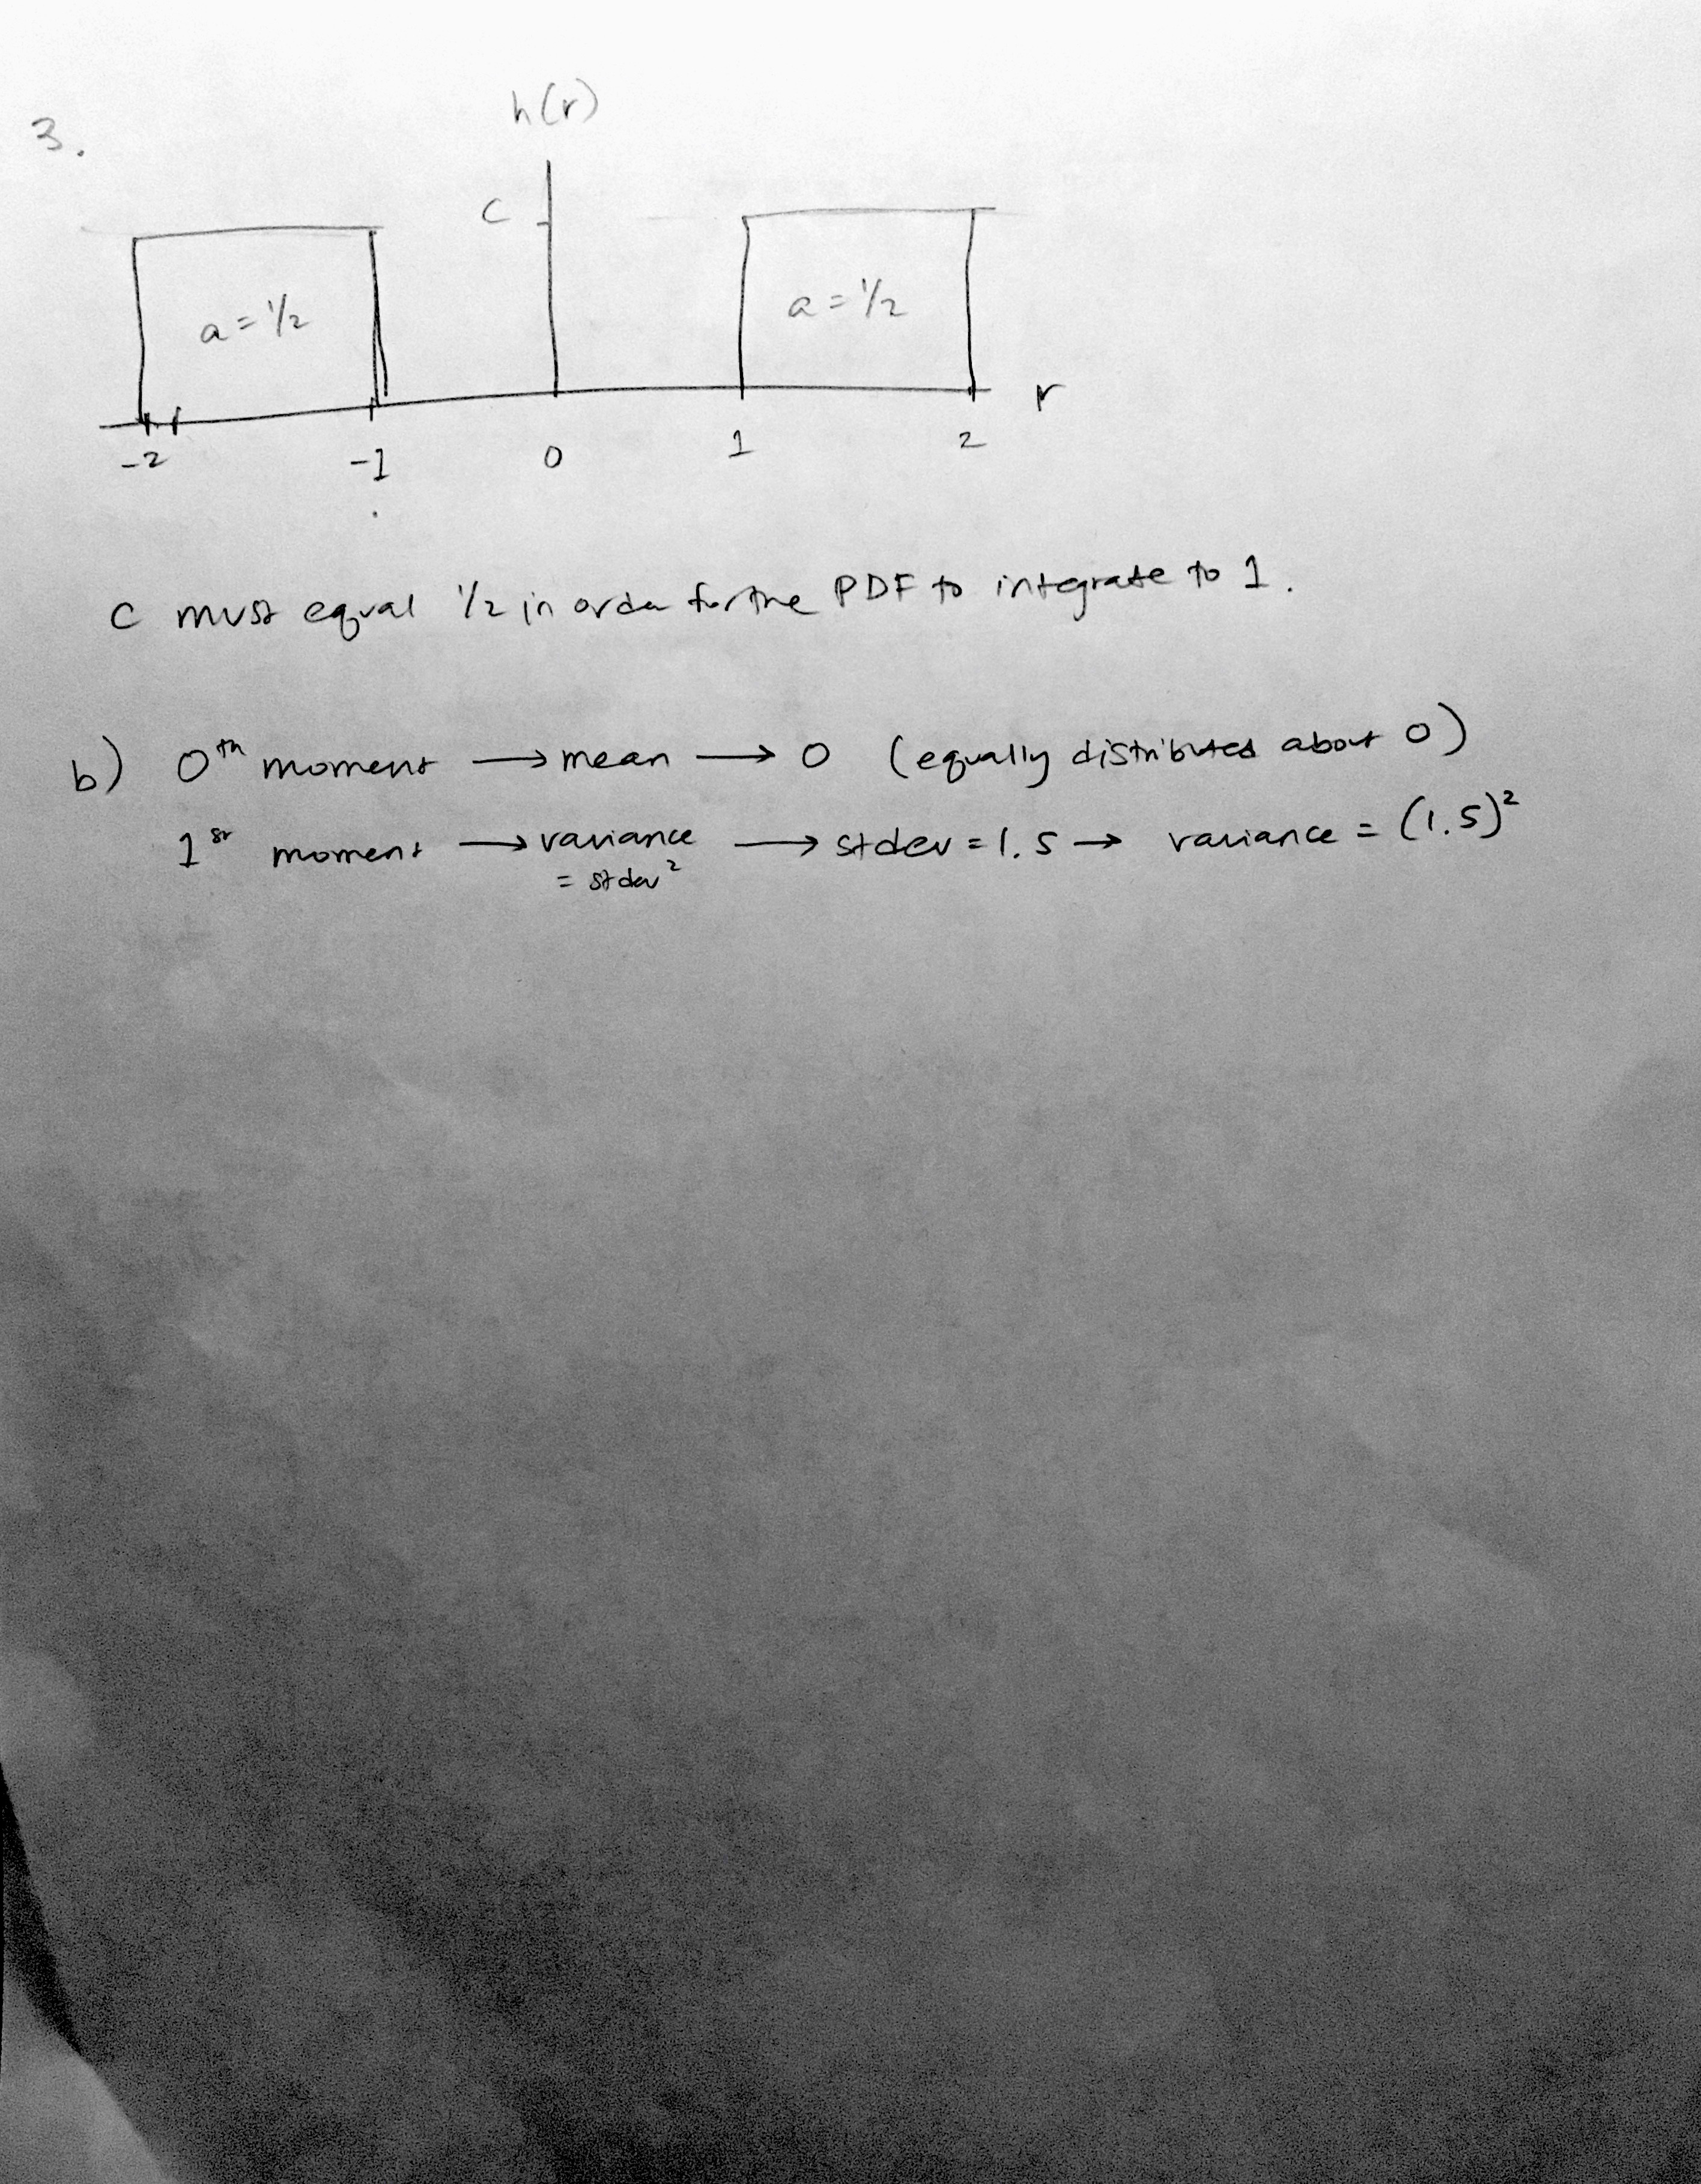 3.
h(r)
C
a = 1/2
a = 1/2
r
-2 -1 0 1 2
C must equal 1/2 in order for the PDF to integrate to 1.
b) 0th moment → mean → 0 (equally distributed about 0)
1st moment → variance → stdev = 1.5 → variance = (1.5)²
= stdev²